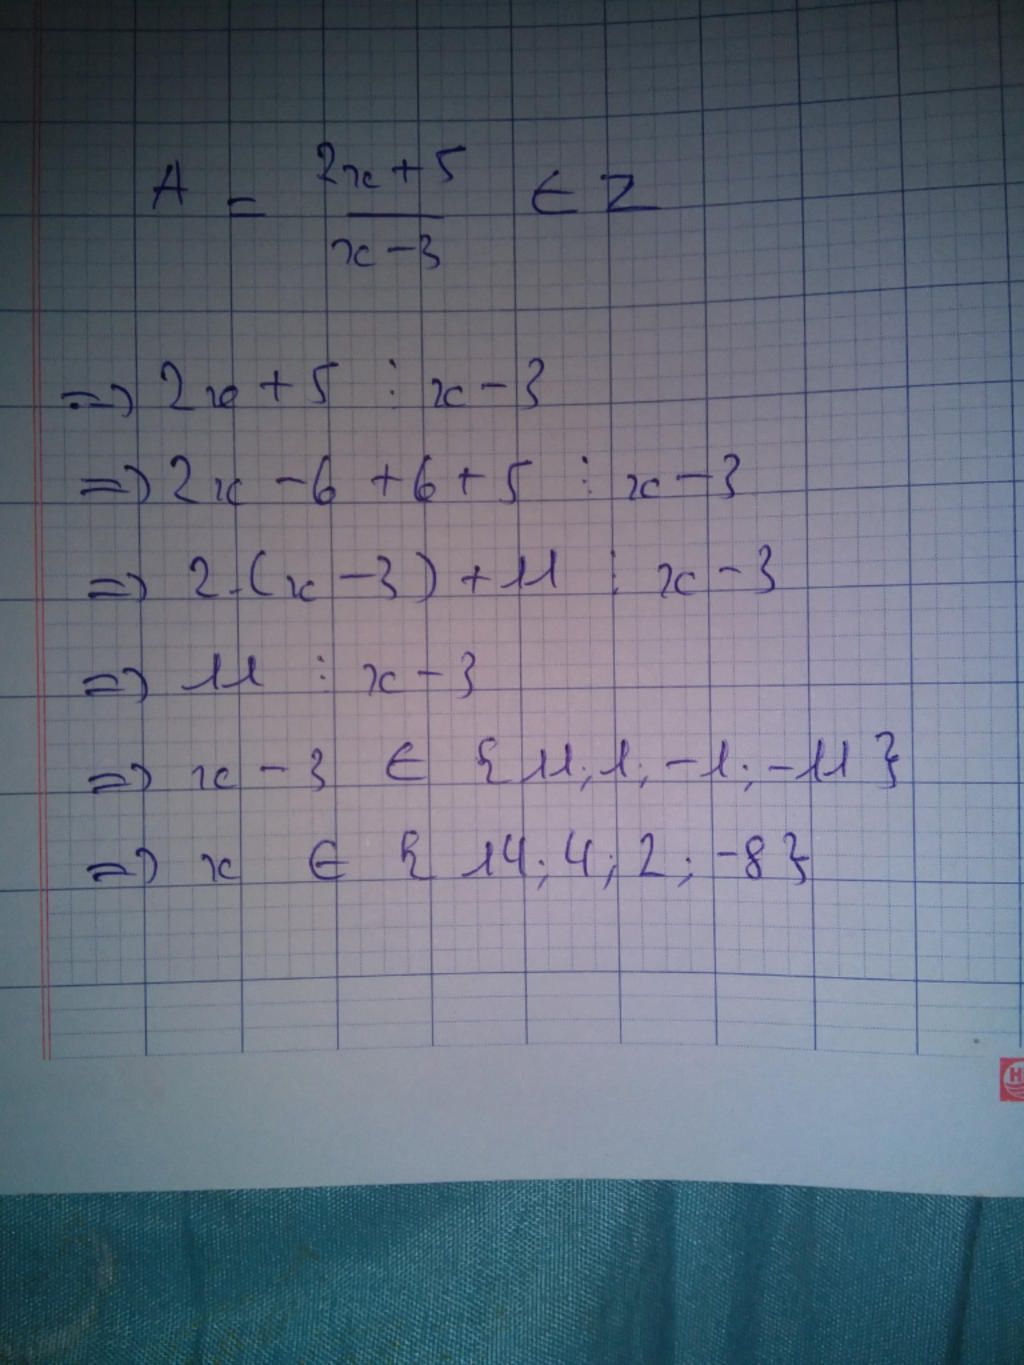 A = \frac{2x+5}{x-3} ∈ Z
=> 2x + 5 ⋮ x - 3
=> 2x - 6 + 6 + 5 ⋮ x - 3
=> 2.(x - 3) + 11 ⋮ x - 3
=> 11 ⋮ x - 3
=> x - 3 ∈ {11; 1; -1; -11}
=> x ∈ {14; 4; 2; -8}